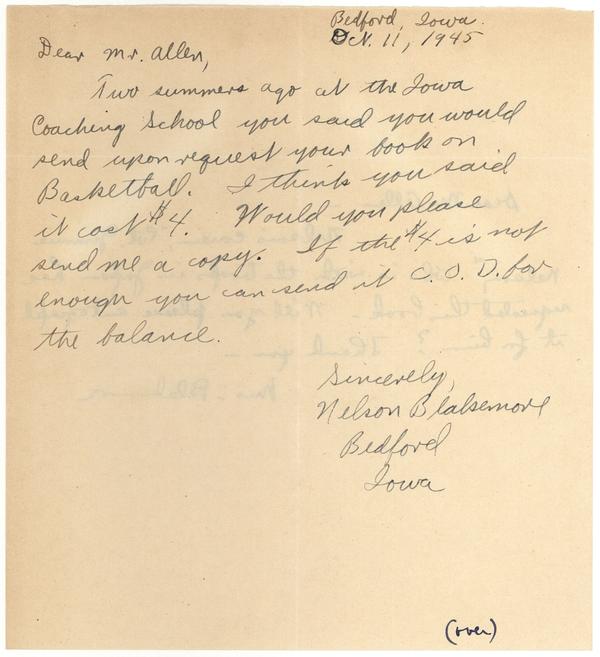 Bedford, Iowa.
Oct. 11, 1945
Dear Mr. Allen,
Two summers ago at the Iowa
Coaching School you said you would
send upon request your book on
Basketball. I think you said
it cost $4. Would you please
send me a copy. If the $4 is not
enough you can send it C.O.D. for
the balance.
Sincerely,
Nelson Blakemore
Bedford
Iowa
(over)